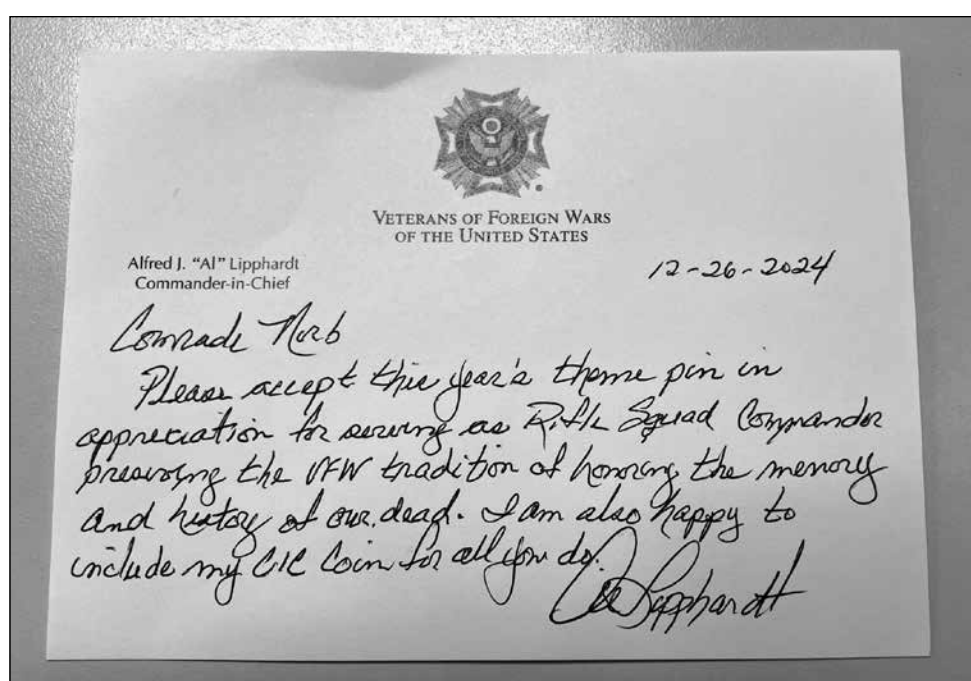 VETERANS OF FOREIGN WARS
OF THE UNITED STATES
Alfred J. "Al" Lipphardt
Commander-in-Chief
12-26-2024
Comrade Norb
Please accept this year's theme pin in
appreciation for serving as Rifle Squad Commander
preserving the VFW tradition of honoring the memory
and history of our dead. I am also happy to
include my CIC Coin for all you do.
Al Lipphardt